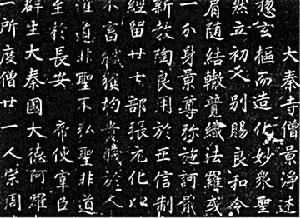 大秦寺僧景淨述
惣玄樞而造化妙衆聖
然立初人別賜良和令
肩隨結轍競織法羅或
一分身景尊弥施訶戢
新教陶良用於正信制
經留廿七部張元化以
不畜臧獲均貴賤於人
唯道非聖不弘聖非道
至於長安 帝使宰臣
群生大秦國大德阿羅
一所度僧廿一人宗周